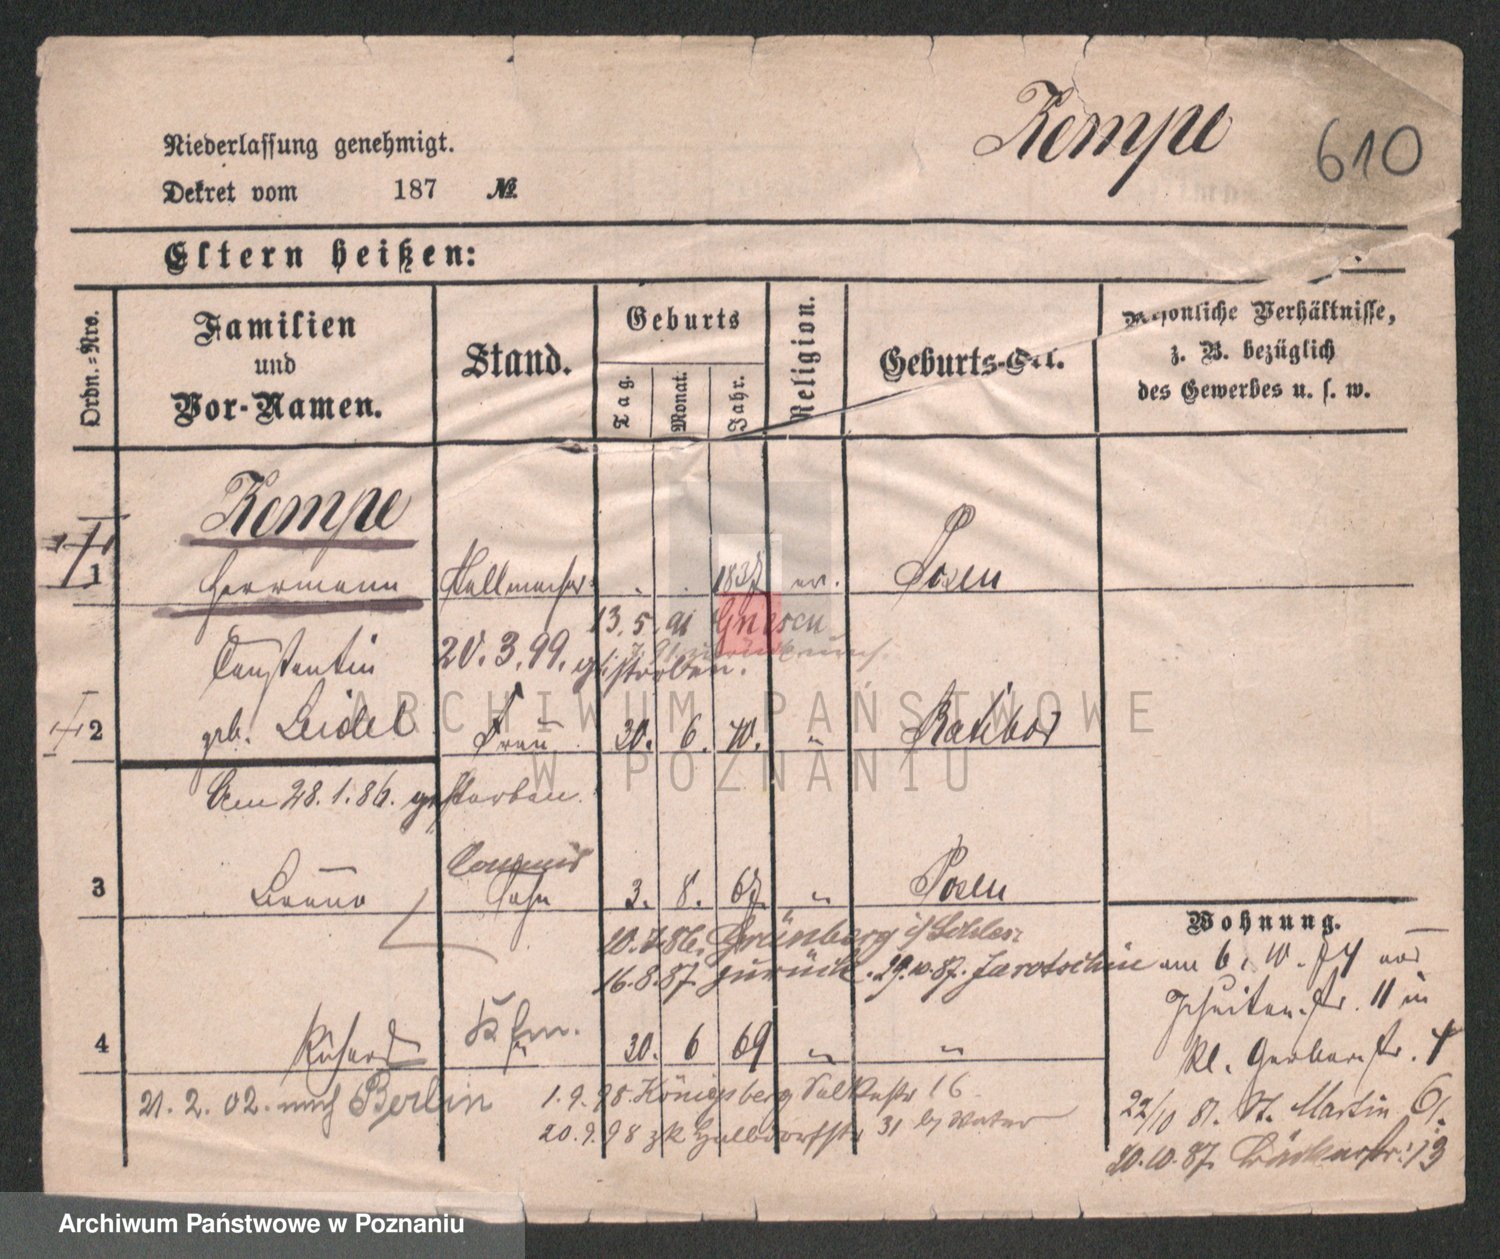 Kempe
610
Niederlassung genehmigt.
Dekret vom 187 №
Eltern heißen:
Ordn.-Nro.
Familien
und
Vor-Namen.
Stand.
Geburts
Tag.
Monat.
Jahr.
Religion.
Geburts-Ort.
Persönliche Verhältnisse,
z. B. bezüglich
des Gewerbes u. s. w.
Kempe
1 Herrmann Stellmacher . . 1837 ev. Posen
13.5.91 Gnesen
Constantin 20.3.99. gestorben.
2 geb. Seidel Frau 30. 6. 40. " Ratibor
Am 28.1.86. gestorben.
Commis
3 Bruno Sohn 3. 8. 67. " Posen
Wohnung.
20.7.86. Grünberg i/Schles.
16.8.87. zurück. 29.10.87. Jarotschin
am 6. 10. 74 von
11 in
4 Richard " 30. 6 69 " "
kl. Gerberstr. 4
21.2.02. nach Berlin
1.9.98 Königsberg 16
20.9.98 zk Halbdorfstr 31 b/ Vater
22/10 81. St. Martin 61.
20.10.87. Bäckerstr. 13
ARCHIWUM PAŃSTWOWE
W POZNANIU
Archiwum Państwowe w Poznaniu